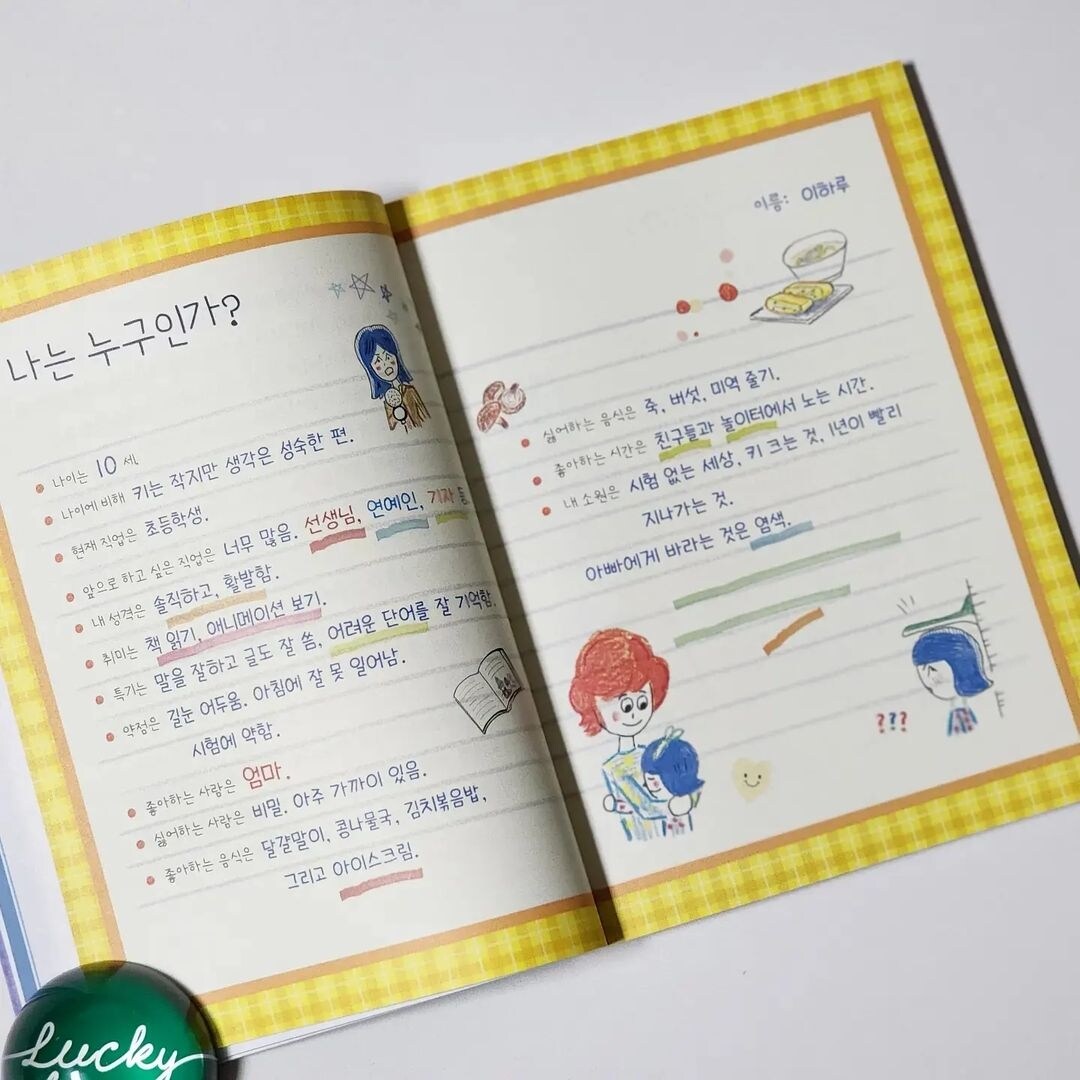 나는 누구인가?
나이는 10 세.
나이에 비해 키는 작지만 생각은 성숙한 편.
현재 직업은 초등학생.
앞으로 하고 싶은 직업은 너무 많음. 선생님, 연예인, 기자 등
내 성격은 솔직하고, 활발함.
취미는 책 읽기, 애니메이션 보기.
특기는 말을 잘하고 글도 잘 씀, 어려운 단어를 잘 기억함.
약점은 길눈 어두움. 아침에 잘 못 일어남.
시험에 약함.
좋아하는 사람은 엄마.
싫어하는 사람은 비밀. 아주 가까이 있음.
좋아하는 음식은 달걀말이, 콩나물국, 김치볶음밥,
그리고 아이스크림.
이름: 이하루
싫어하는 음식은 죽, 버섯, 미역 줄기.
좋아하는 시간은 친구들과 놀이터에서 노는 시간.
내 소원은 시험 없는 세상, 키 크는 것, 1년이 빨리
지나가는 것.
아빠에게 바라는 것은 염색.
???
Lucky